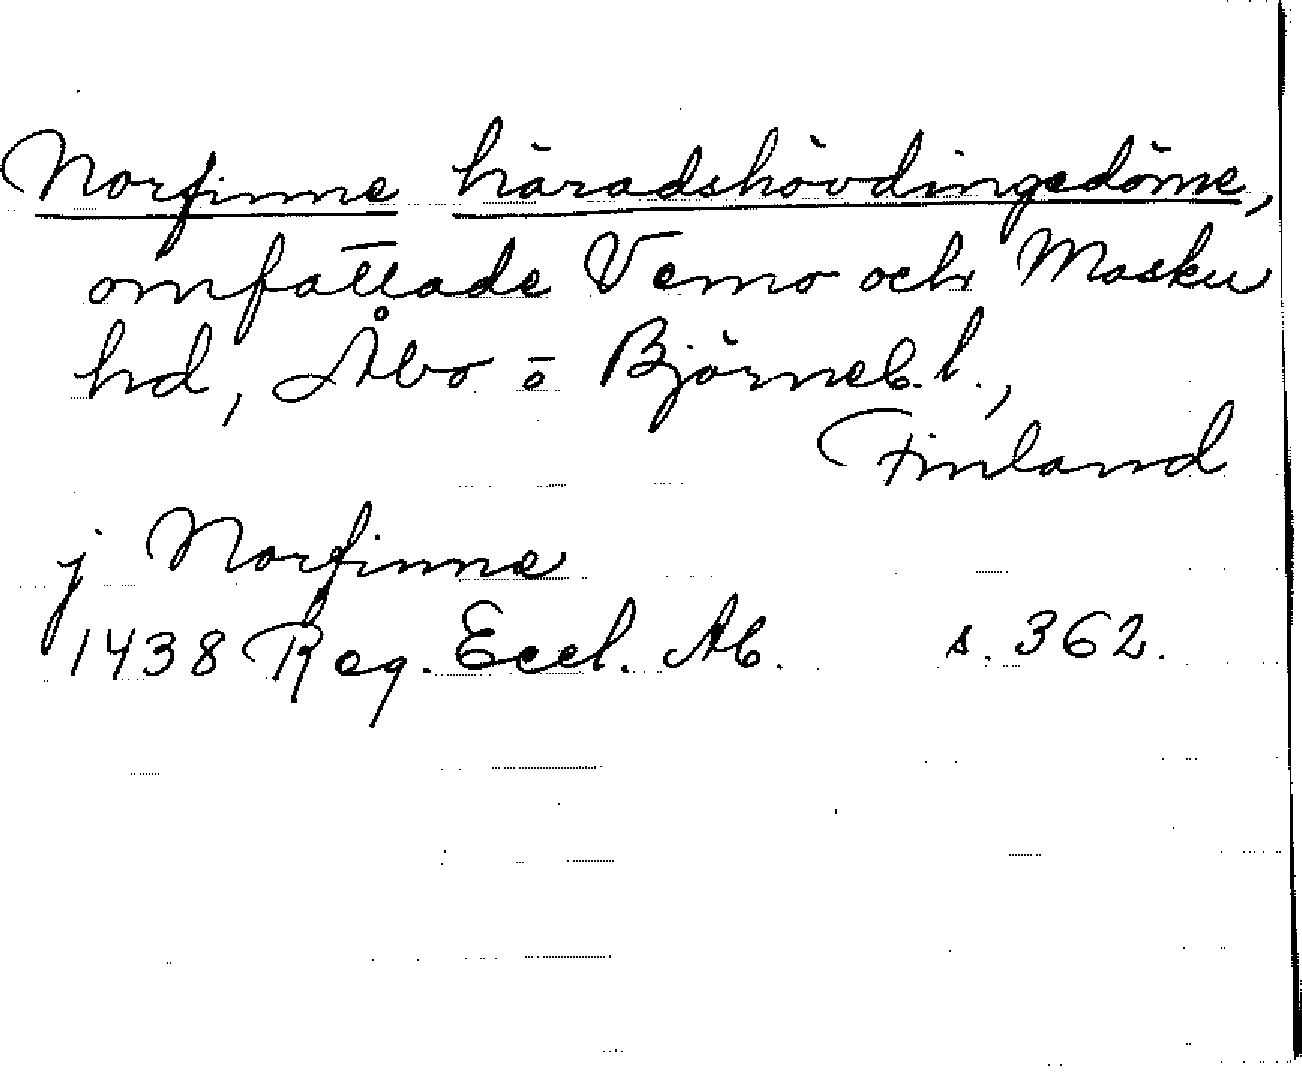 Norfinne häradshövdingedöme,
omfattade Vemo och Masku
hd, Åbo o Björneb. l.,
Finland
j Norfinne
1438 Reg. Eccl. Ab. s. 362.